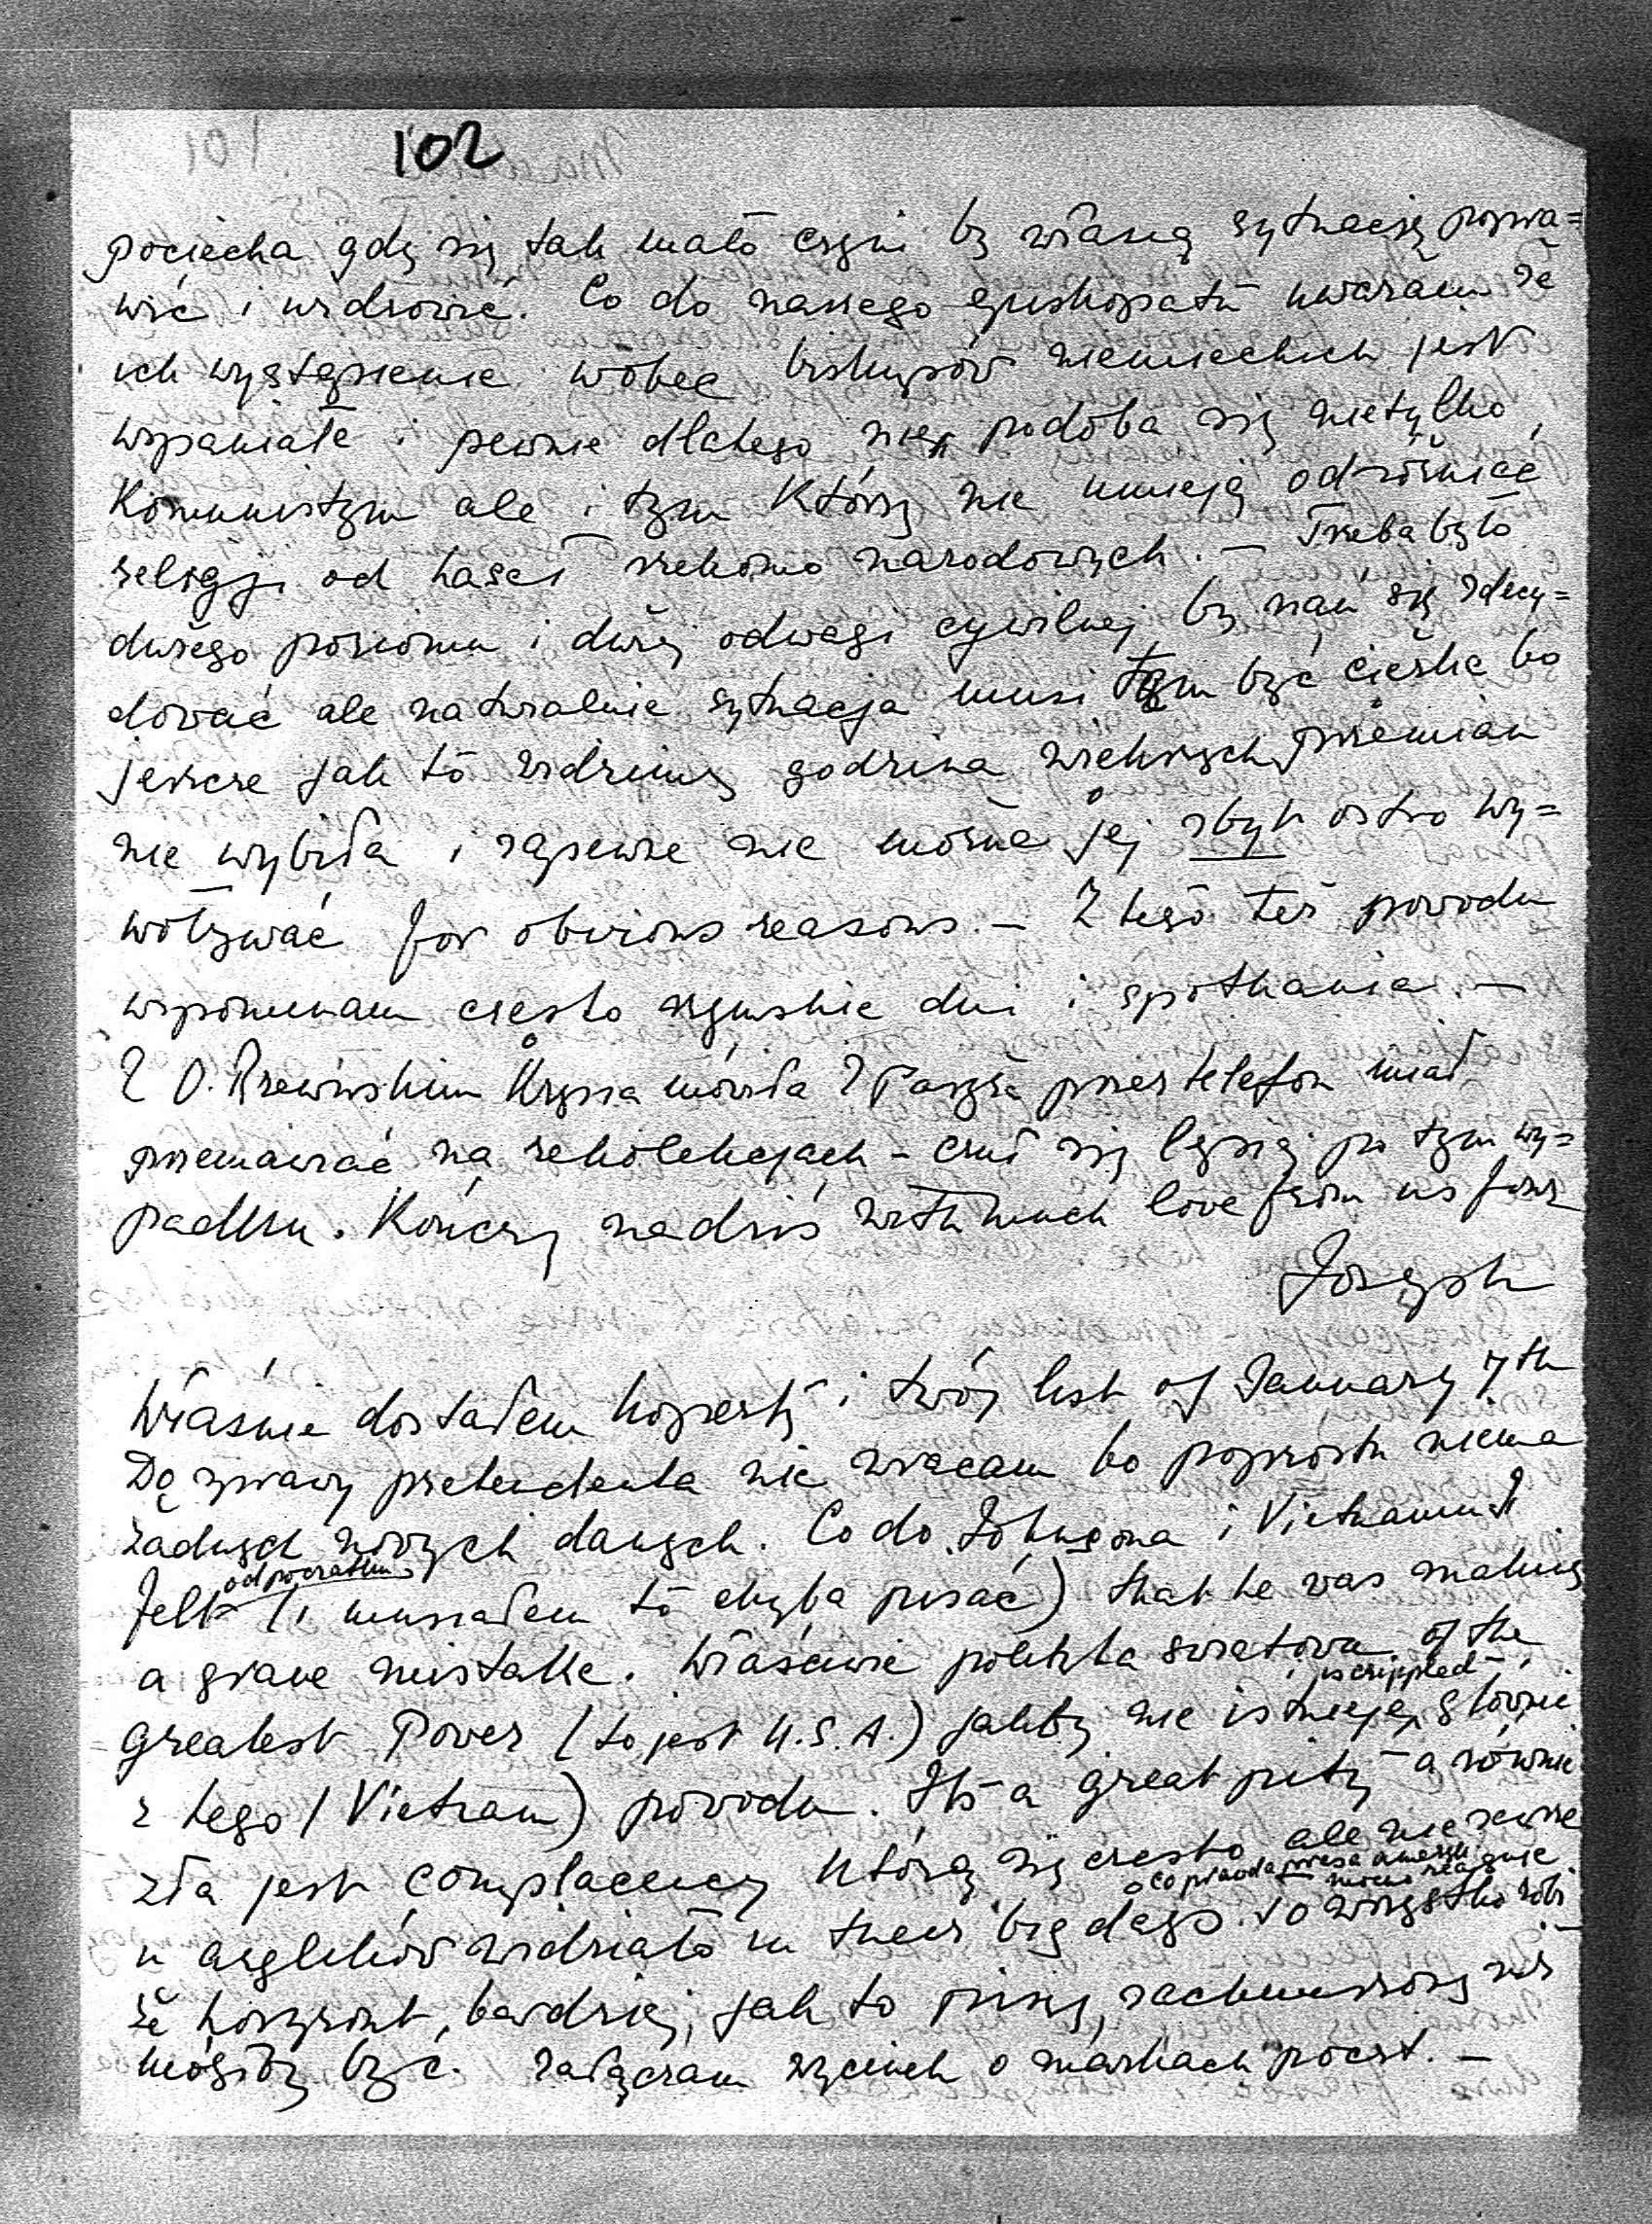 102
pociecha gdy się tak mało czyni by własną sytuację popra=
wić i uzdrowić. Co do naszego episkopatu uważam że
ich wystąpienie wobec biskupów niemieckich jest
wspaniałe i pewnie dlatego nie podoba się nietylko
Komunistym ale i tym którzy nie umieją odróżniać
religji od haseł rzekomo narodowych. – Trzeba było
dużego poziomu i dużej odwagi cywilnej by nań się zdecy=
dować ale naturalnie sytuacja musi tym być ciężka bo
jeszcze jak to widzimy godzina większych przemian
nie wybiła i zapewne nie można jej zbyt ostro wy=
woływać for obvious reasons. – Z tego też powodu
wspominam często rzymskie dni i spotkania. –
Z O. Krysia mówiła z Paryża przez telefon miał
przemawiać na rekolekcjach – czuł się lepiej po tym wy=
padku. Kończę na dziś with much love from us four
Joseph
Właśnie dostałem kopertę i twój list of January 7th
Do sprawy pretendenta nie wracam bo poprostu niema
żadnych nowych danych. Co do Johnsona i Vietnamu I
felt od początku (i musiałem to chyba pisać) that he was making
a grave mistake. Właściwie polityka światowa of the
greatest Power (to jest U.S.A.) jakby nie istnieje, is crippled – głównie
z tego (Vietnam) powodu. It's a great pity – a równie
zła jest complacency którą się często ale nie zawsze
u anglików widziało in their big days. co prawda prasa ameryk mocno reaguje To wszystko robi
że horyzont, bardziej, jak to piszę, zachmurzony niż
mógłby być. Załączam wycinek o markach poczt. –